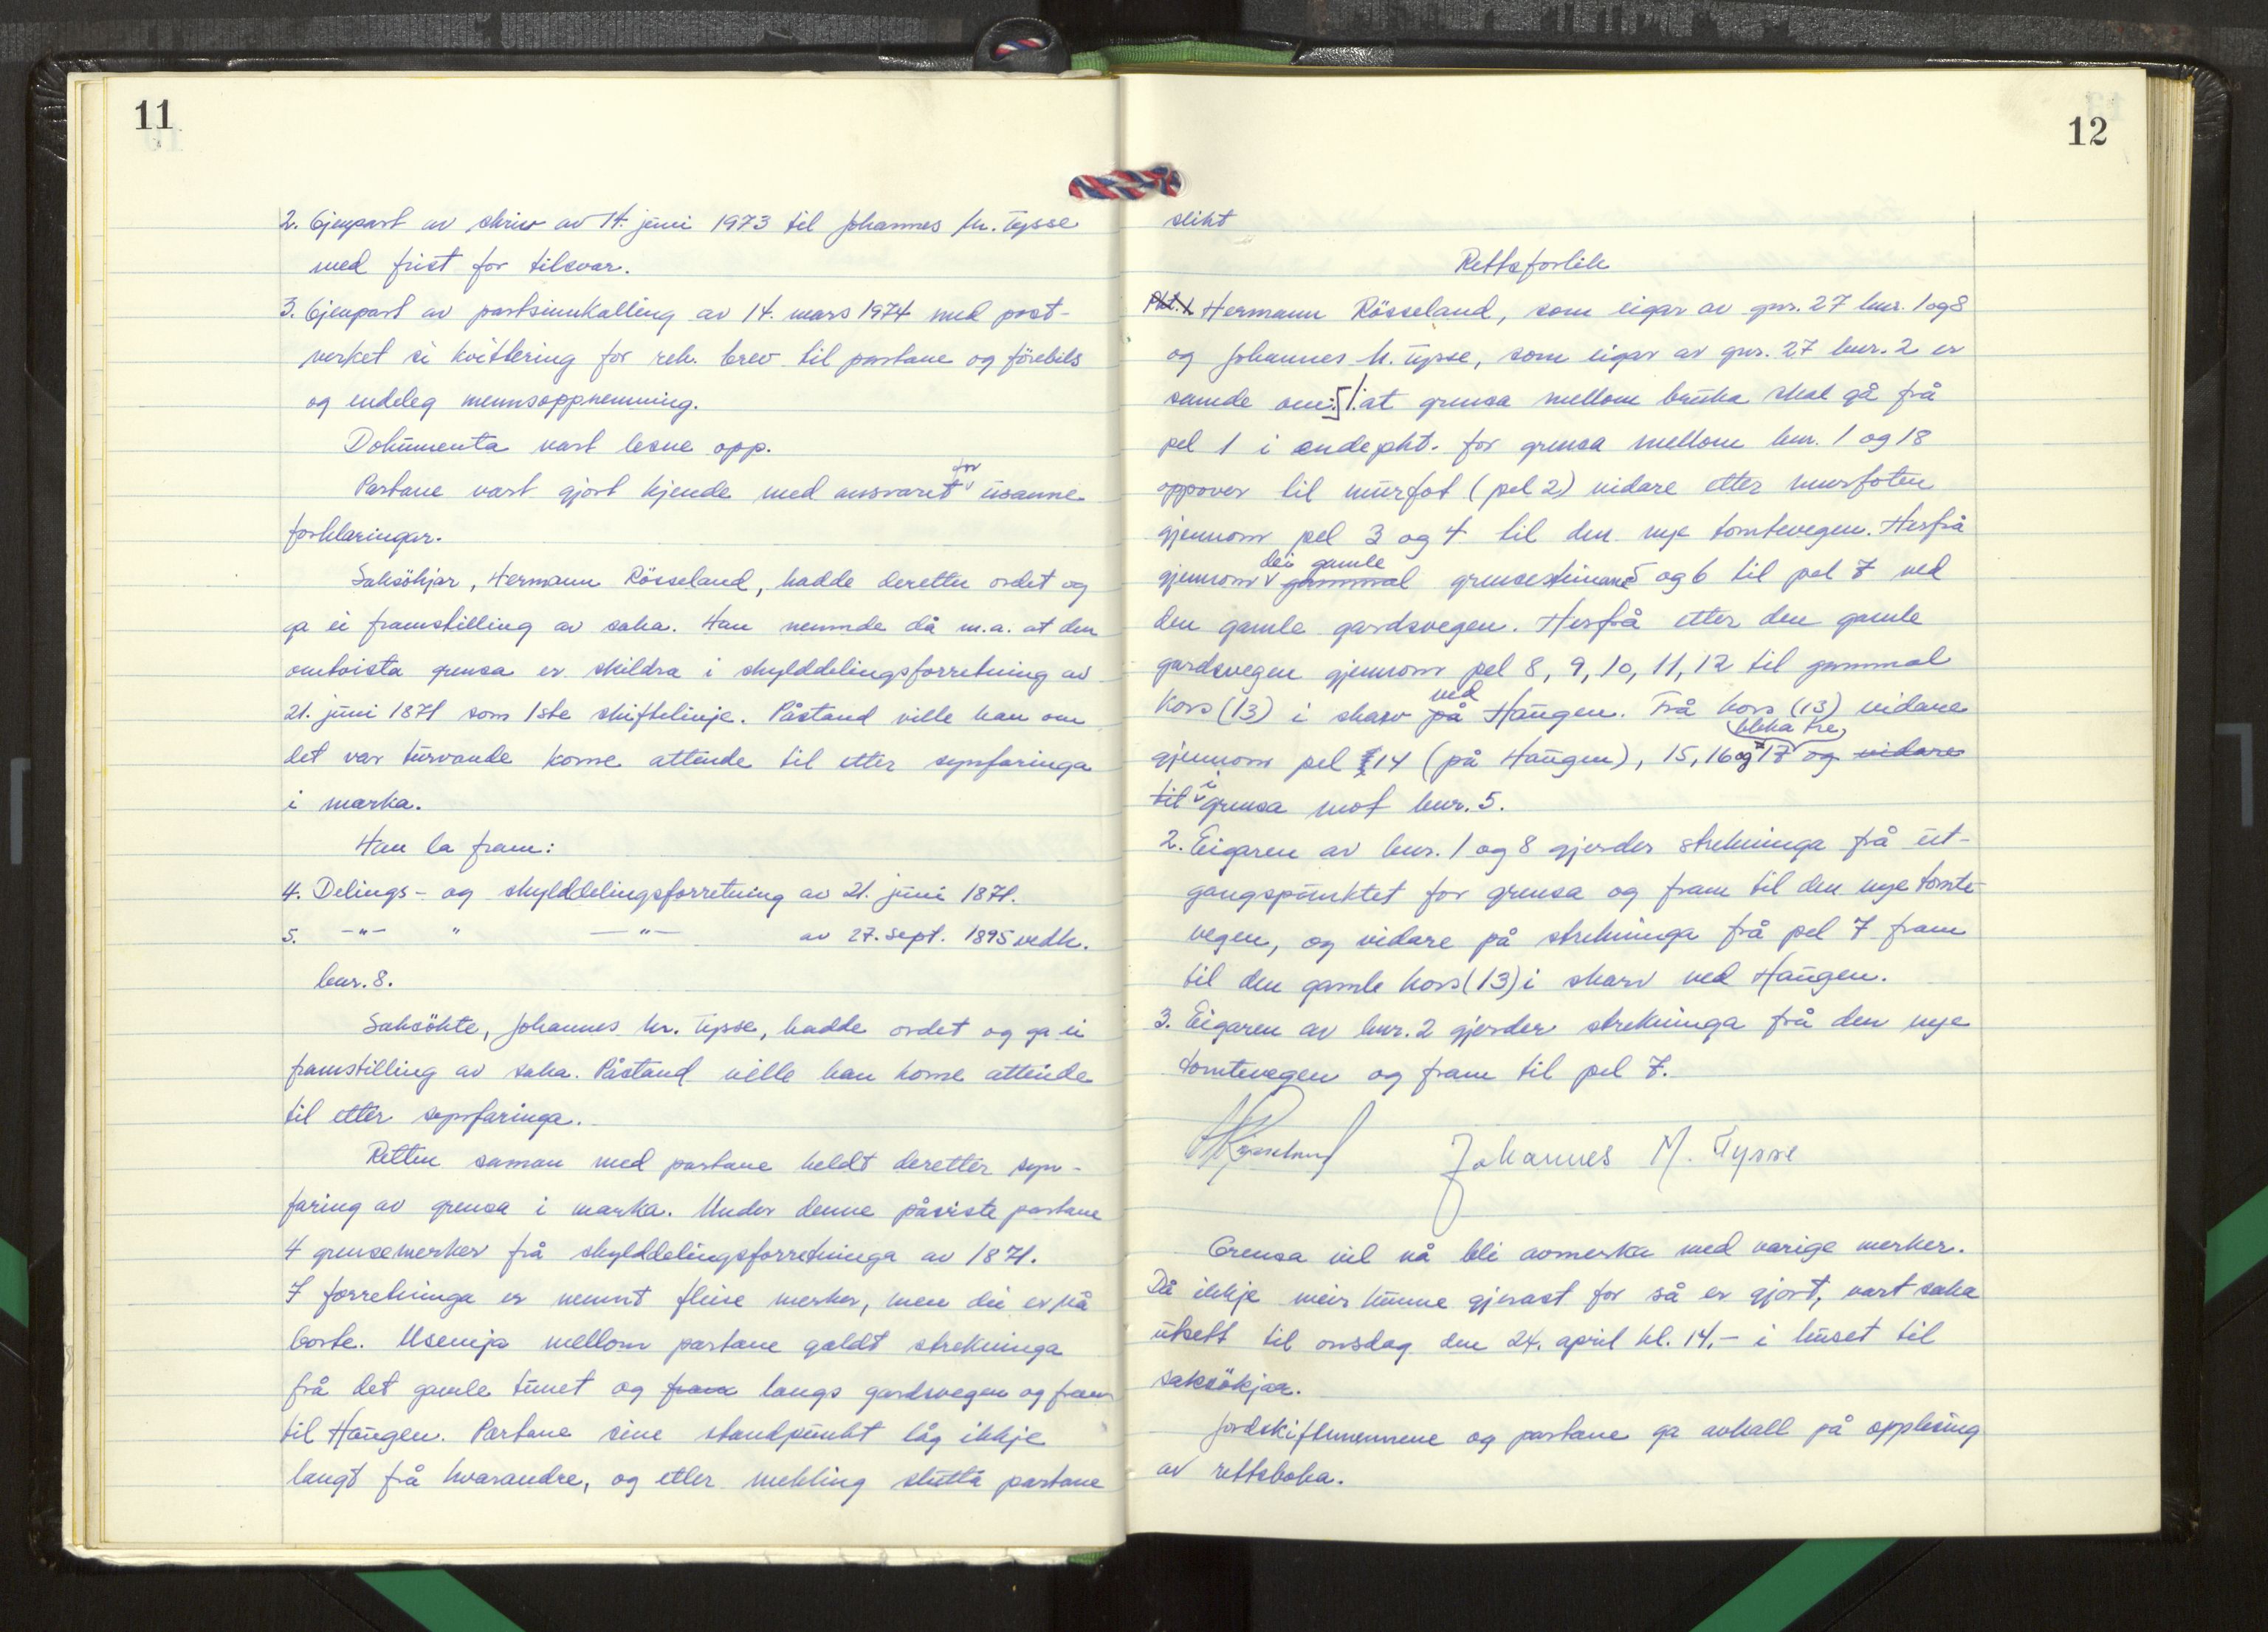 11
2. Gjenpart av skriv av 14. juni 1973 til Johannes M. Tysse
med frist for tilsvar.
3. Gjenpart av partsinnkalling av 14. mars 1974 med post-
verket si kvittering for rek. brev til partane og förebils
og endeleg mennsoppnemning.
Dokumenta vart lesne opp.
Partane vart gjort kjende med ansvaret for usanne
forklaringar.
Saksökjar, Hermann Rösseland, hadde deretter ordet og
ga ei framstilling av saka. Han nemnde då m.a. at den
omtvista grensa er skildra i skylddelingsforretning av
21. juni 1871 som 1ste skiftelinje. Påstand ville han om
det var turvande kome attende til etter synfaringa
i marka.
Han la fram:
4. Delings- og skylddelingsforretning av 21. juni 1871.
5. -"- " -"- av 27. sept. 1895 vedk.
bnr. 8.
Saksökte, Johannes M. Tysse, hadde ordet og ga ei
framstilling av saka. Påstand ville han kome attende
til etter synfaringa.
Retten saman med partane heldt deretter syn-
faring av grensa i marka. Under denne påviste partane
4 grensemerker frå skylddelingsforretninga av 1871.
I forretninga er nemnt fleire merker, men dei er nå
borte. Usemja mellom partane galdt strekninga
frå det gamle tunet og fram langs gardsvegen og fram
til Haugen. Partane sine standpunkt låg ikkje
langt frå kvarandre, og etter mekling slutta partane
12
slikt
Rettsforlik
Pkt. 1 Hermann Rösseland, som eigar av gnr. 27 bnr. 1 og 8
og Johannes M. Tysse, som eigar av gnr. 27 bnr. 2 er
samde om: 1. at grensa mellom bruka skal gå frå
pel 1 i endepkt. for grensa mellom bnr. 1 og 18
oppover til murfot (pel 2) vidare etter murfoten
gjennom pel 3 og 4 til den nye tomtevegen. Herfrå
gjennom dei gamle gammal grensesteinane 5 og 6 til pel 7 ved
den gamle gardsvegen. Herfrå etter den gamle
gardsvegen gjennom pel 8, 9, 10, 11, 12 til gammal
kors (13) i skarv på ved Haugen. Frå kors (13) vidare
gjennom pel 14 (på Haugen), 15, 16 og 17 og vidare
til i grensa mot bnr. 5.
2. Eigaren av bnr. 1 og 8 gjerder strekninga frå ut-
gangspunktet for grensa og fram til den nye tomte-
vegen, og vidare på strekninga frå pel 7 fram
til den gamle kors (13) i skarv ved Haugen.
3. Eigaren av bnr. 2 gjerder strekninga frå den nye
tomtevegen og fram til pel 7.
Johannes M. Tysse
Grensa vil nå bli avmerka med varige merker.
Då ikkje meir kunne gjerast før så er gjort, vart saka
utsett til onsdag den 24. april kl. 14.- i huset til
saksökjar.
Jordskiftemennene og partane ga avkall på opplesing
av rettsboka.